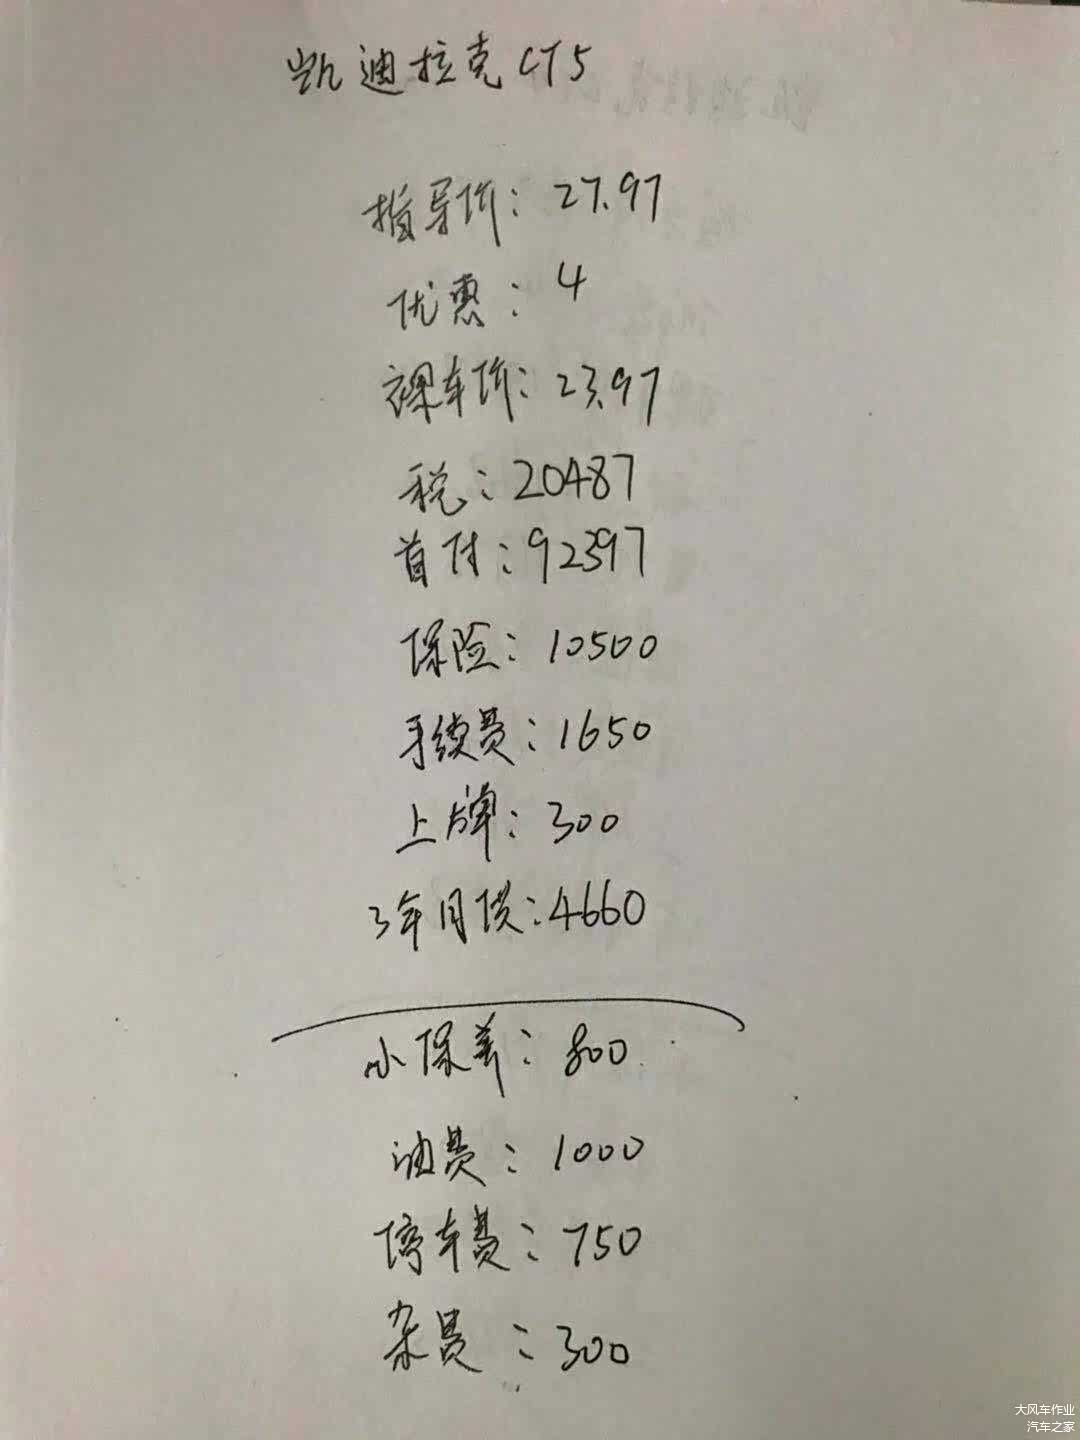 凯迪拉克CT5
指导价：27.97
优惠：4
裸车价：23.97
税：20487
首付：92397
保险：10500
手续费：1650
上牌：300
3年月供：4660
小保养：800
油费：1000
停车费：750
杂费：300
大风车作业
汽车之家